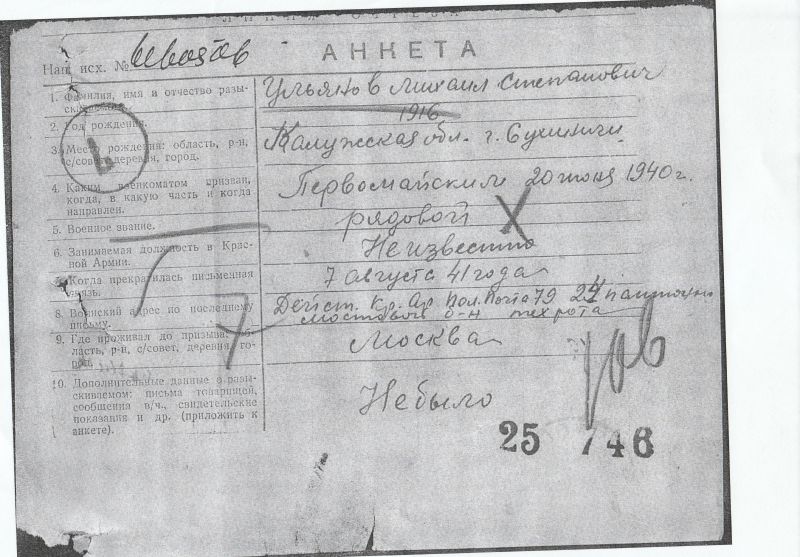 АНКЕТА
Наш исх. №
1. Фамилия, имя и отчество разыскиваемого Ульянов Михаил Степанович
2. Год рождения. 1916
3. Место рождения: область, р-н, с/совет, деревня, город. Калужская обл. г. Сухиничи
4. Каким военкоматом призван, когда, в какую часть и когда направлен. Первомайским 20 июня 1940 г.
5. Военное звание. рядовой
6. Занимаемая должность в Красной Армии. Неизвестно
7. Когда прекратилась письменная связь. 7 августа 41 года
8. Воинский адрес по последнему письму. Дейст. Кр. Ар. Пол. Почта 79 24 понтонно
мостовой б-н техрота
9. Где проживал до призыва: область, р-н, с/совет, деревня, город. Москва
10. Дополнительные данные о разыскиваемом: письма товарищей, сообщения в/ч., свидетельские показания и др. (приложить к анкете). Небыло
25 746